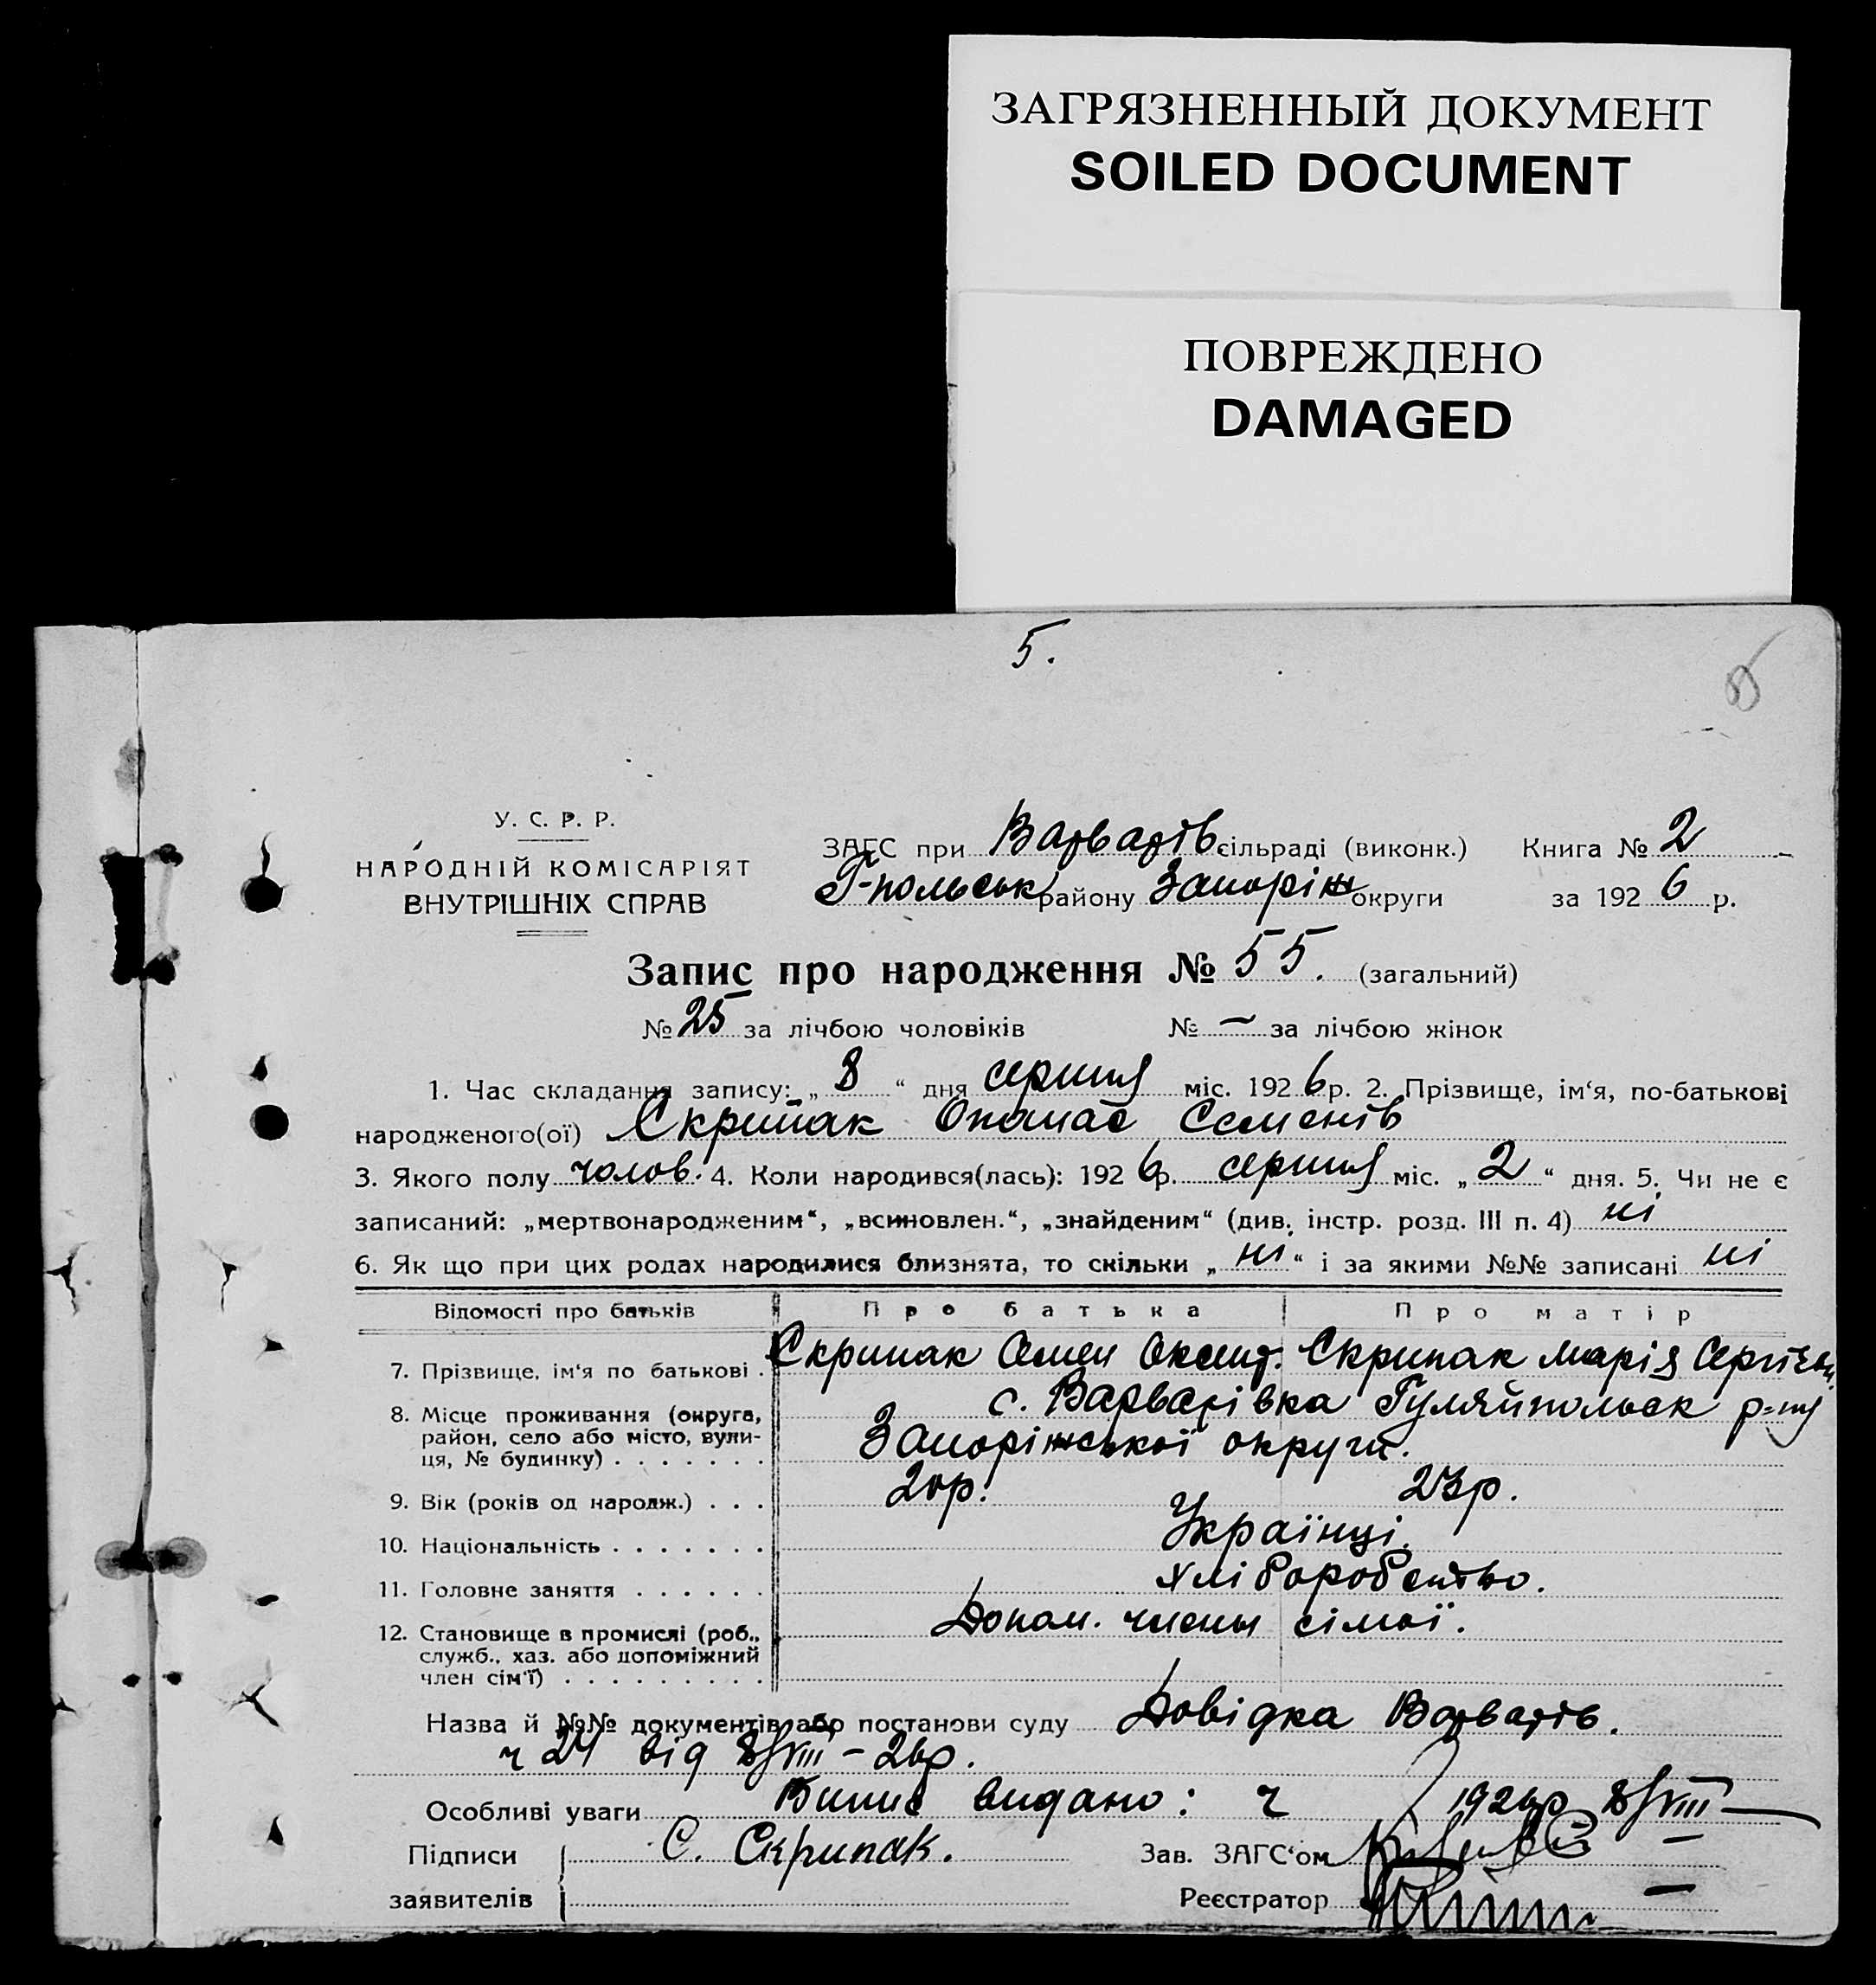 ЗАГРЯЗНЕННЫЙ ДОКУМЕНТ
SOILED DOCUMENT
ПОВРЕЖДЕНО
DAMAGED
5.
У. С. Р. Р.
НАРОДНІЙ КОМІСАРІЯТ
ВНУТРІШНІХ СПРАВ
ЗАГС при Варварів сільраді (виконк.) Книга № 2
Г-польськ району Запоріж округи за 1926 р.
Запис про народження № 55. (загальний)
№ 25 за лічбою чоловіків № — за лічбою жінок
1. Час складання запису: „ 8 “ дня серпня міс. 1926 р. 2. Прізвище, ім‘я, по-батькові
народженого(ої) Скрипак Опанас Семенів
3. Якого полу чолов. 4. Коли народився(лась): 1926 р. серпня міс. „ 2 “ дня. 5. Чи не є
записаний: „мертвонародженим“, „всиновлен.“, „знайденим“ (див. інстр. розд. III п. 4) ні
6. Як що при цих родах народилися близнята, то скільки „ ні “ і за якими №№ записані ні
Відомості про батьків Про батька Про матір
7. Прізвище, ім‘я по батькові . Скрипак Семен Оксент. Скрипак Марія
8. Місце проживання (округа, район, село або місто, вулиця, № будинку) . . . . . . . с. Варварівка Гуляйпольськ р-ну
Запоріжської округи.
9. Вік (років од народж.) . . . 20р. 23р.
10. Національність . . . . . . . Українці.
11. Головне заняття . . . . . . хліборобство.
12. Становище в промислі (роб., служб., хаз. або допоміжний член сім‘ї) . . . . . . . . . Допом. члени сімої.
Назва й №№ документів або постанови суду Довідка Варварів.
ч 24 від 8/VIII – 26р.
Особливі уваги Випис видано: ч 1926р 8/VIII
Підписи С. Скрипак. Зав. ЗАГС‘ом
заявителів Реєстратор